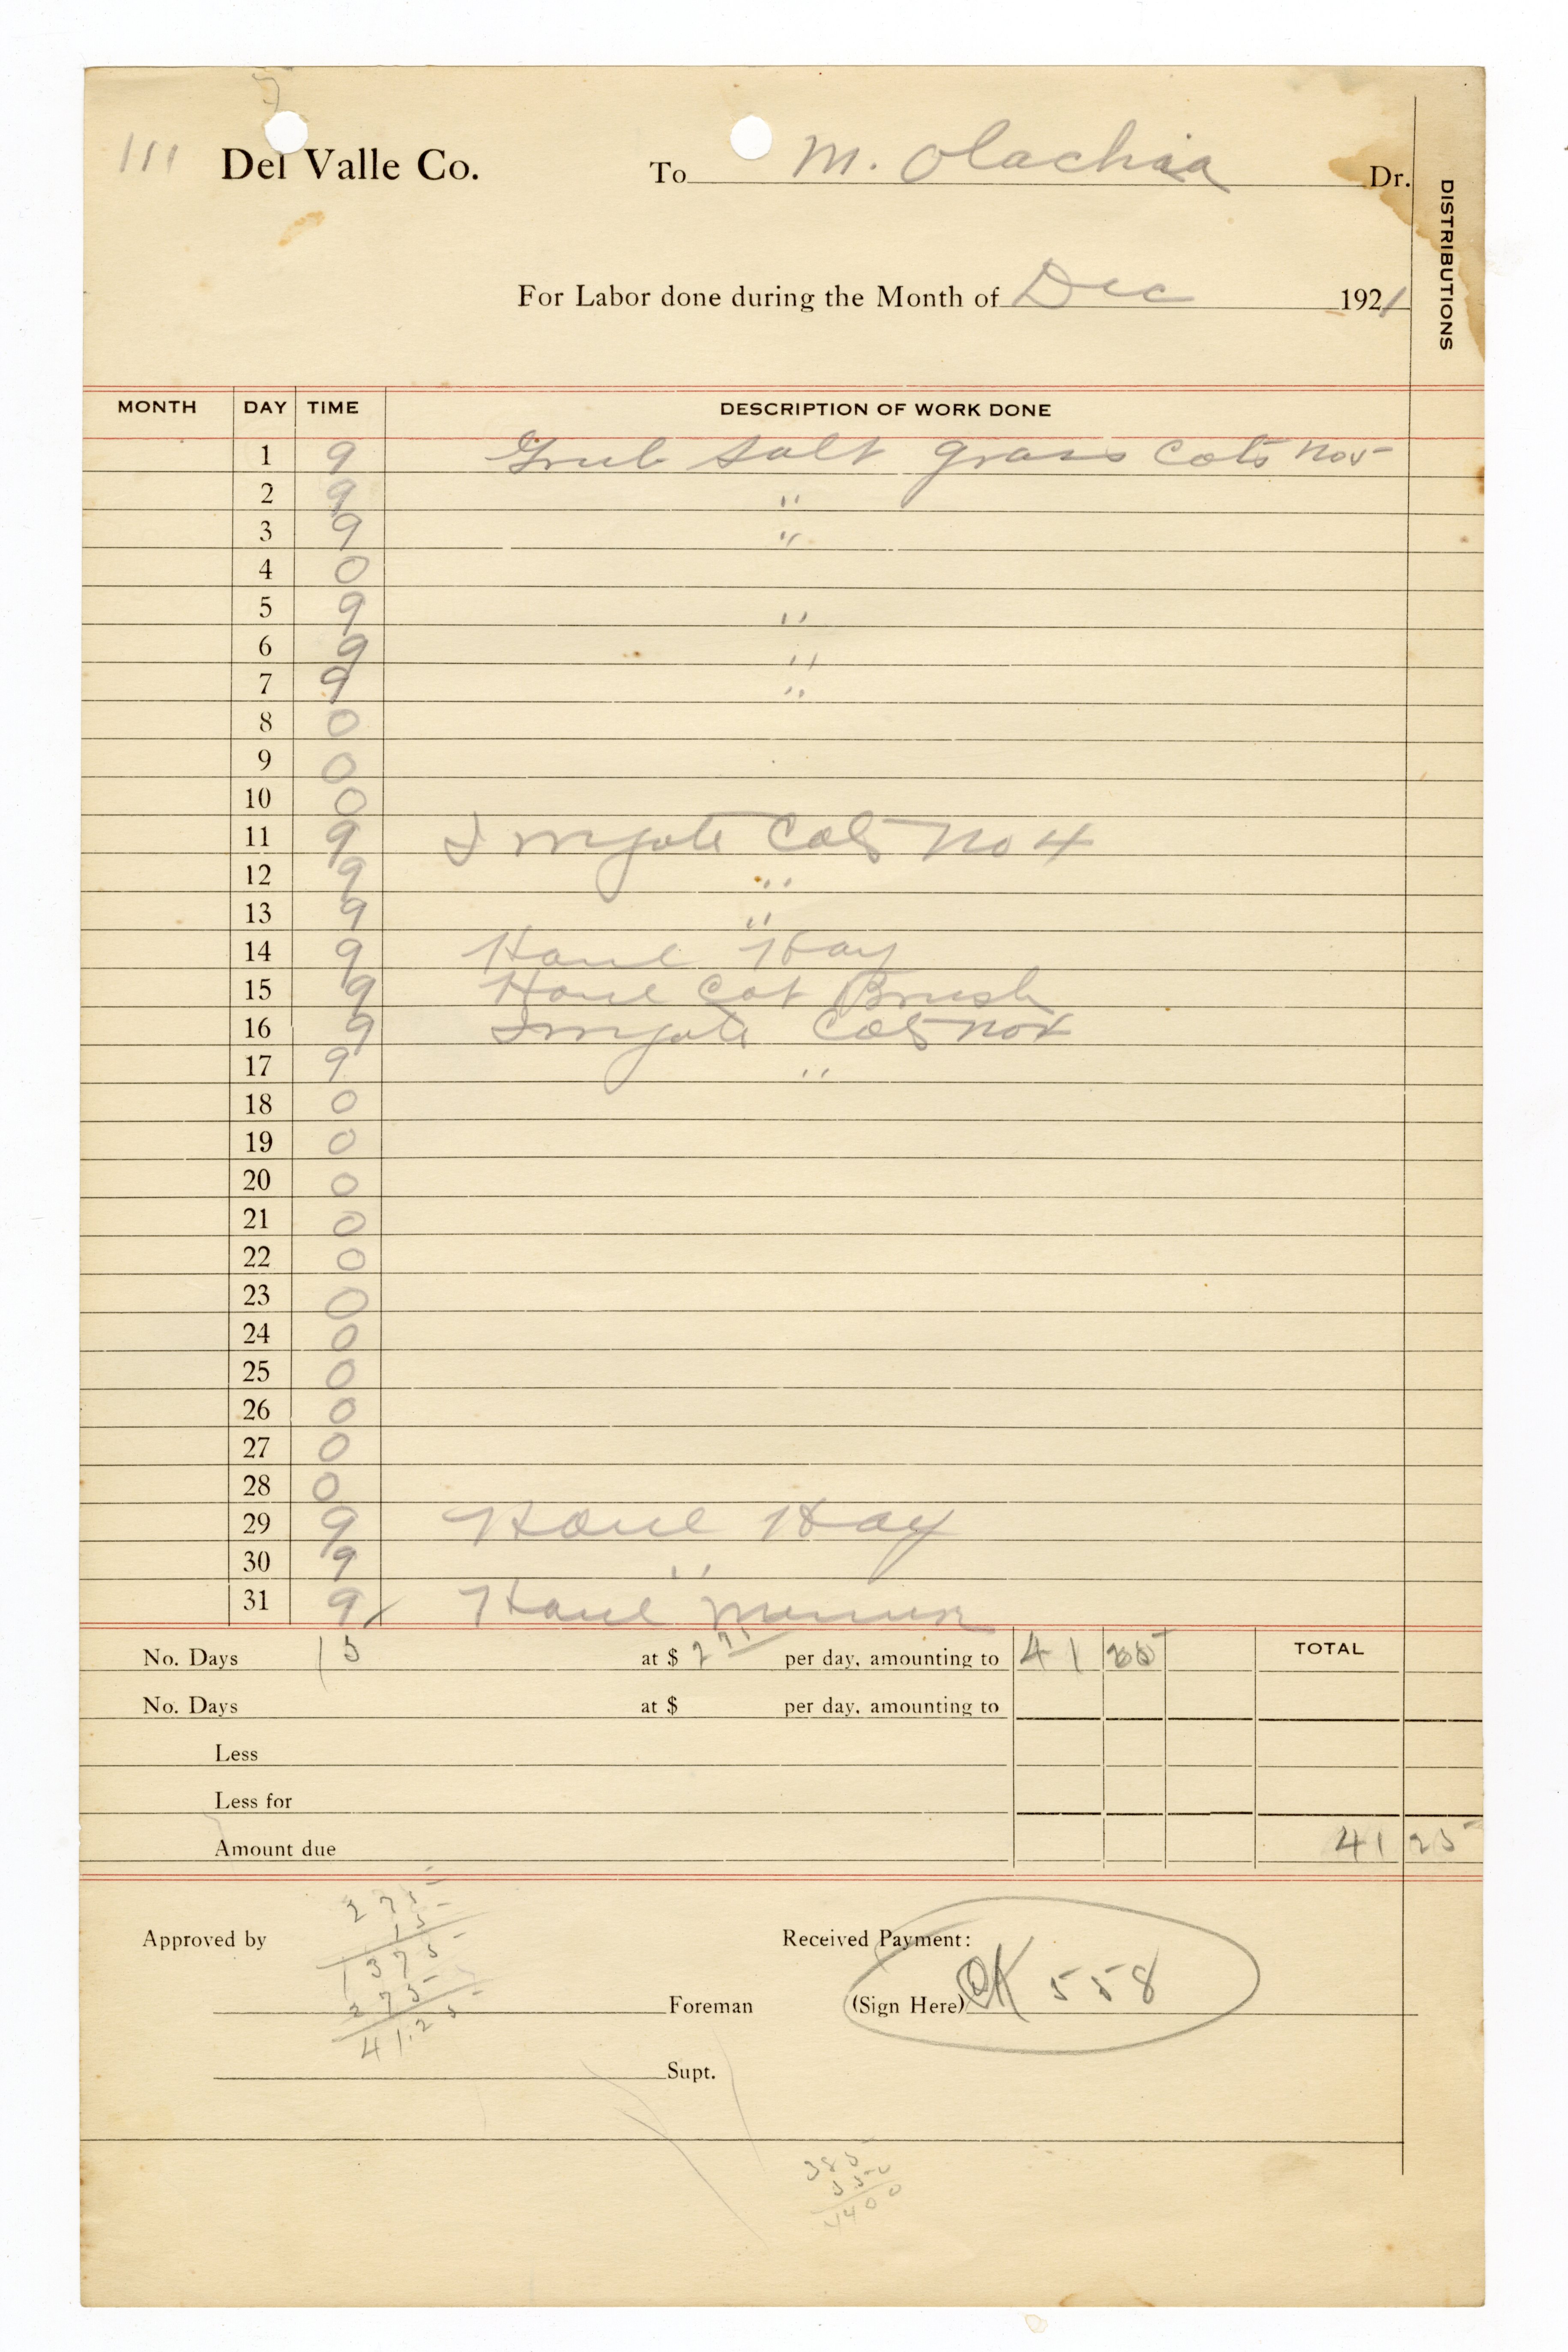 111 Del Valle Co. To M. Olachia Dr.
DISTRIBUTIONS
For Labor done during the Month of Dec 1921
MONTH DAY TIME DESCRIPTION OF WORK DONE
1 9 Grub Salt grass Cots No 5
2 9 "
3 9 "
4 0
5 9 "
6 9 "
7 9 "
8 0
9 0
10 0
11 9 Irrigate Cots No 4
12 9 "
13 9 "
14 9 Haul Hay
15 9 Haul Cot Brush
16 9 Irrigate Cots No 4
17 9 "
18 0
19 0
20 0
21 0
22 0
23 0
24 0
25 0
26 0
27 0
28 0
29 9 Haul Hay
30 9 "
31 9 Haul
No. Days 15 at $ 2 75 per day, amounting to 41 25 TOTAL
No. Days at $ per day, amounting to
Less
Less for
Amount due 41 25
275
15
1375
275
41.25
Approved by
Received Payment:
Foreman
(Sign Here) OK 558
Supt.
385
550